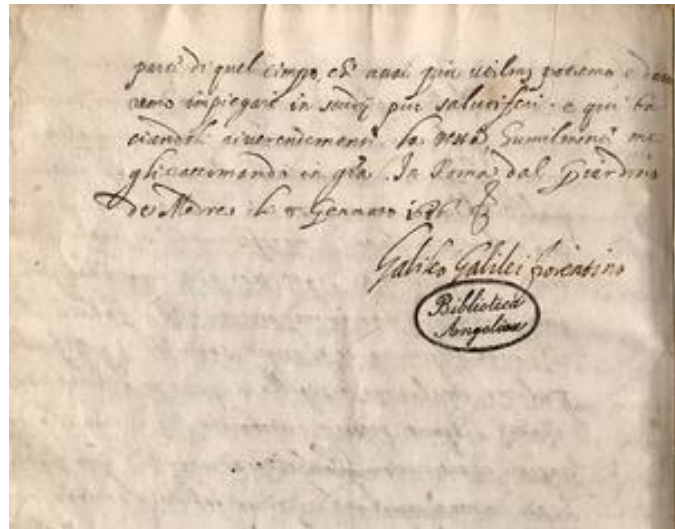 parti di quel tempo, che assai più utilm.te potremo, e dov
remo impiegare in studij più salutiferi. e qui ba
ciandoli reverentemente la vesta, humilmente me
gli raccomando in gra. In Roma dal Giardino
de Medici li Gennaro 1616
Galileo Galilei fiorentino
Biblioteca
Angelica